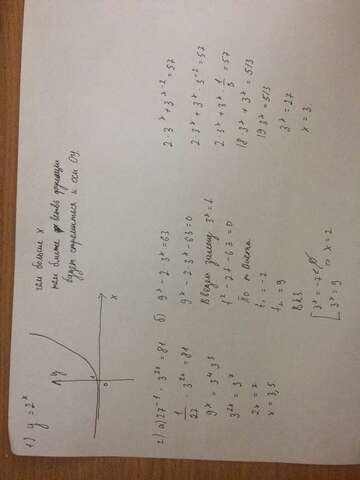 1) y = 2ˣ
y
1
0
x
чем больше x
тем ближе ветвь функции
будет стремиться к оси Oy.
2) а) 27⁻¹ · 3²ˣ = 81
1/27 · 3²ˣ = 81
9ˣ = 3⁴ · 3³
3²ˣ = 3⁷
2x = 7
x = 3,5
б) 9ˣ - 2 · 3ˣ = 63
9ˣ - 2 · 3ˣ - 63 = 0
Введём замену 3ˣ = t
t² - 2t - 63 = 0
По т. Виета
t₁ = -7
t₂ = 9
3ˣ = -7 ∉ ∅
3ˣ = 9 => x = 2
2 · 3ˣ + 3ˣ⁻² = 57
2 · 3ˣ + 3ˣ · 3⁻² = 57
2 · 3ˣ + 3ˣ · 1/9 = 57
18 · 3ˣ + 3ˣ = 513
19 · 3ˣ = 513
3ˣ = 27
x = 3.